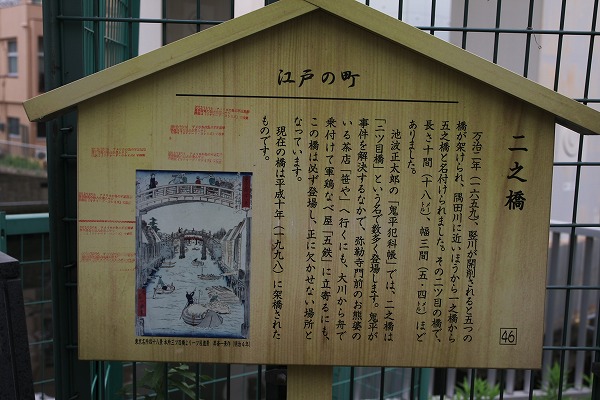 江戸の町
二之橋
万治二年(一六五九)、竪川が開削されると五つの
橋が架けられ、隅田川に近いほうから一之橋から
五之橋と名付けられました。その二ツ目の橋で、
長さ十間(十八㍍)、幅三間(五・四㍍)ほど
ありました。
池波正太郎の「鬼平犯科帳」では、二之橋は
「二ツ目橋」という名で数多く登場します。鬼平が
事件を解決するなかで、弥勒寺門前のお熊婆の
いる茶店「笹や」へ行くにも、大川から舟で
乗付けて軍鶏なべ屋「五鉄」に立寄るにも、
この橋は必ず登場し、正に欠かせない場所と
なっています。
現在の橋は平成十年(一九九八)に架橋された
ものです。
46